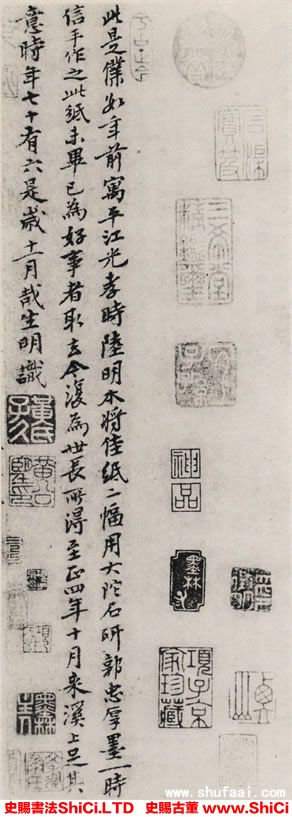 此是僕數年前寓平江光孝時陸明本將佳紙二幅用大陀石研郭忠厚墨一時
信手作之此紙未畢已為好事者取去今復為世長所得至正四年十月來溪上足其
意時年七十有六是歲十一月哉生明識
三希堂精鑑璽
宜子孫
神品
墨林
項子京家珍藏
黃氏子久
www.shufaai.com
史賜書法ShiCi.LTD 史賜古董 www.ShiCi.Ltd